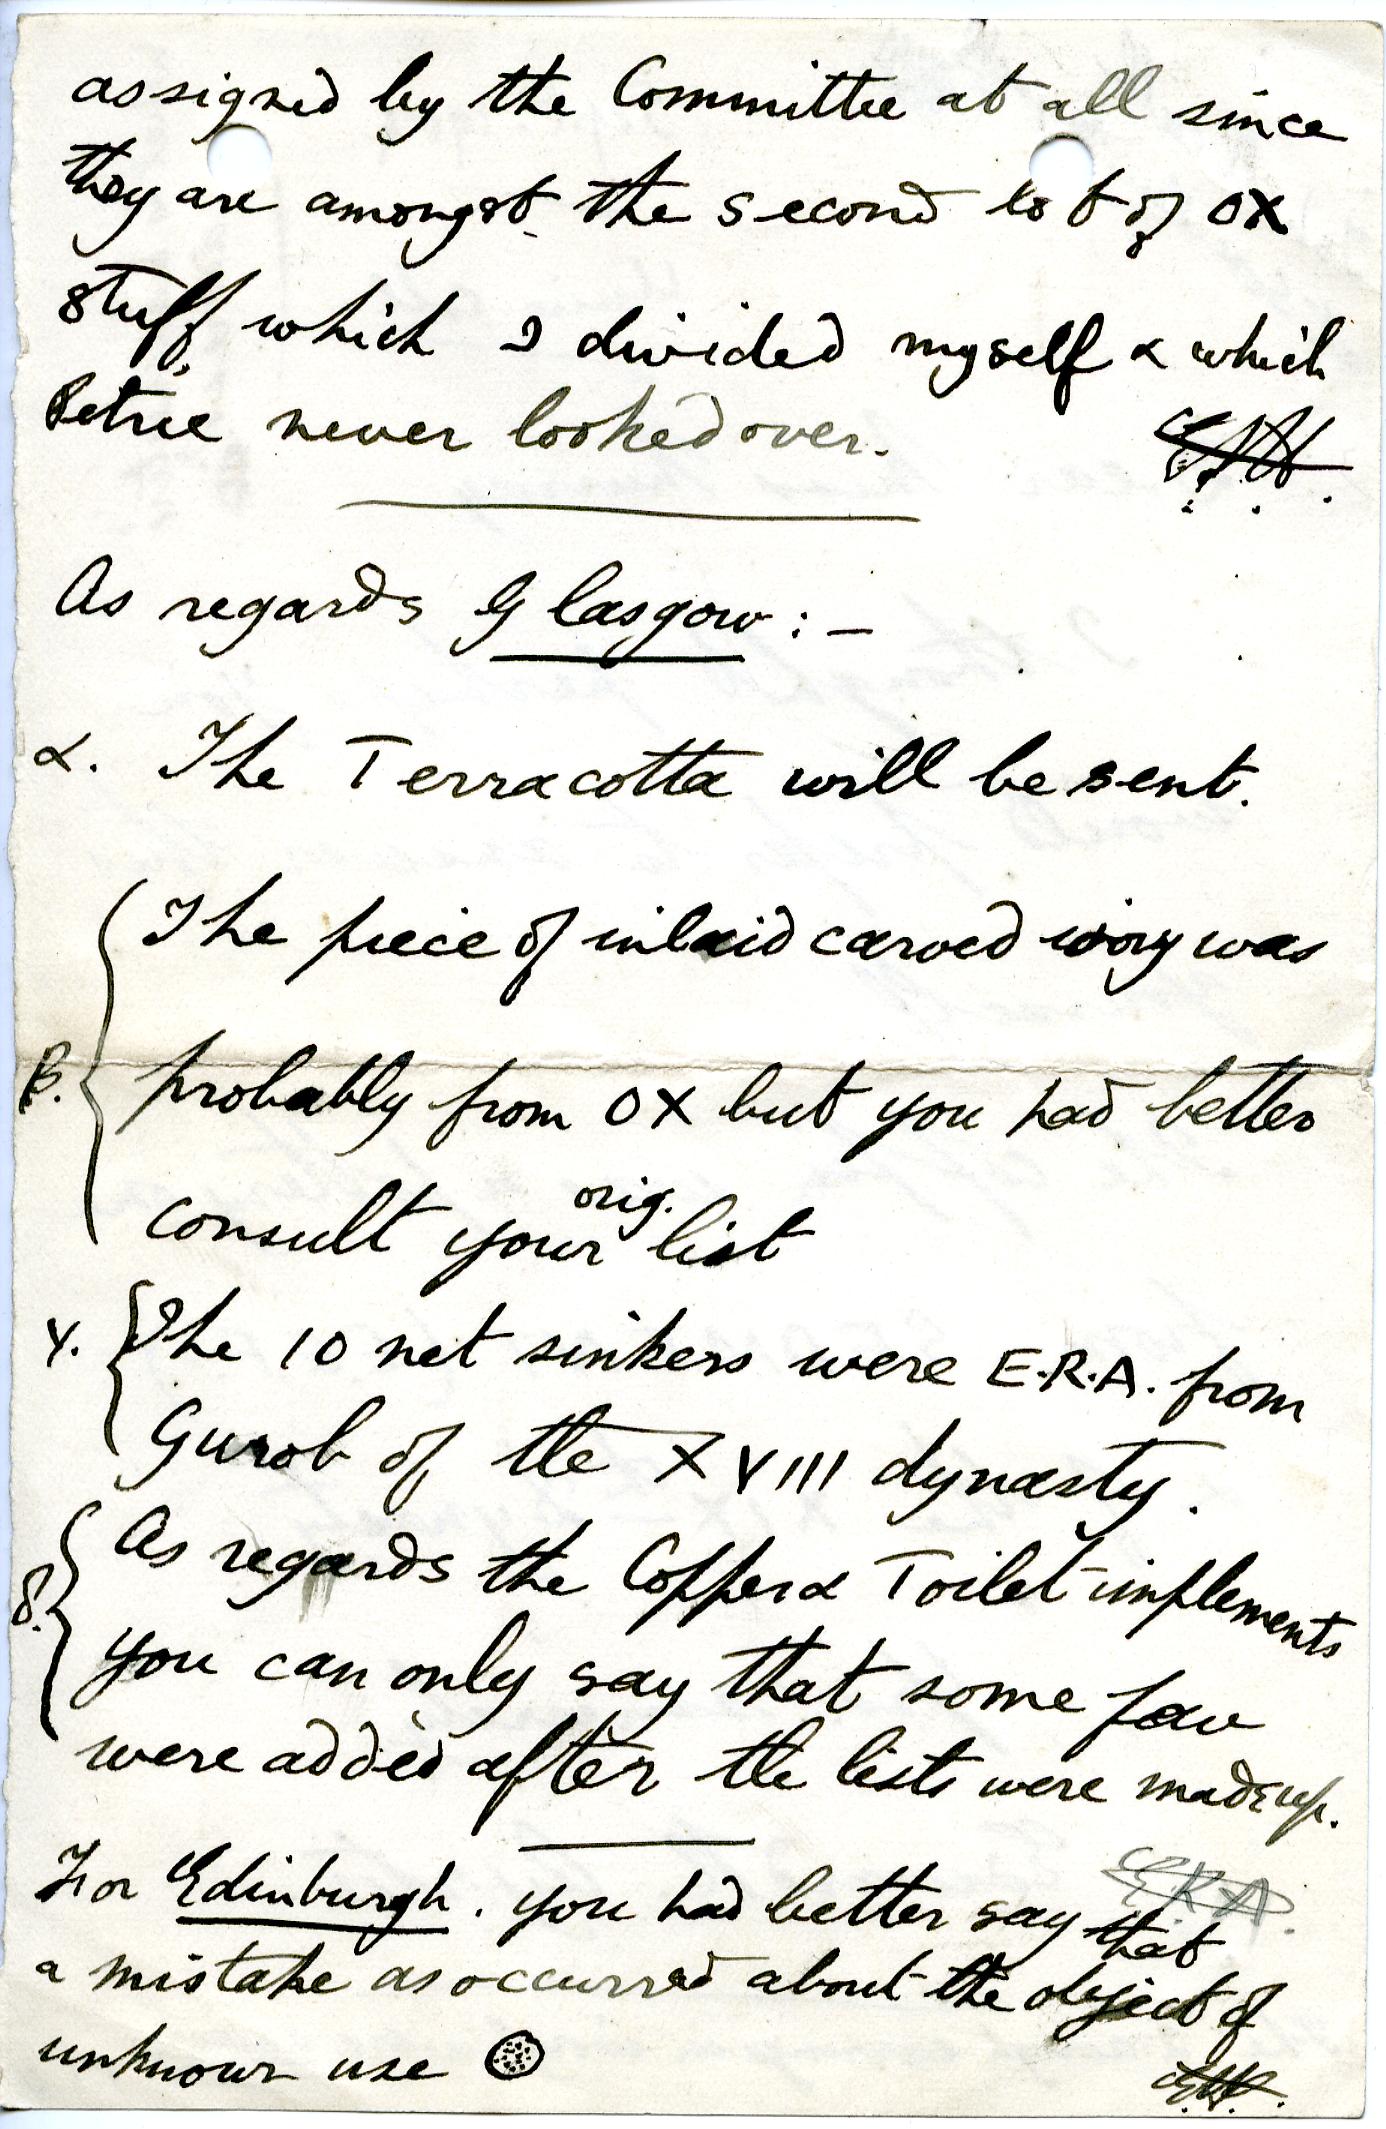 assigned by the Committee at all since
they are amongst the second lot of OX
stuff which I divided myself & which
Petrie never looked over.
As regards Glasgow : –
α. The Terracotta will be sent.
The piece of inlaid carved ivory was
β. probably from OX but you had better
consult your orig. list
γ. The 10 net sinkers were E.R.A. from
Gurob of the XVIII dynasty.
As regards the Copper & Toilet implements
δ. you can only say that some few
were added after the lists were made up.
For Edinburgh. you had better say that
a mistake as occurred about the object of
unknown use